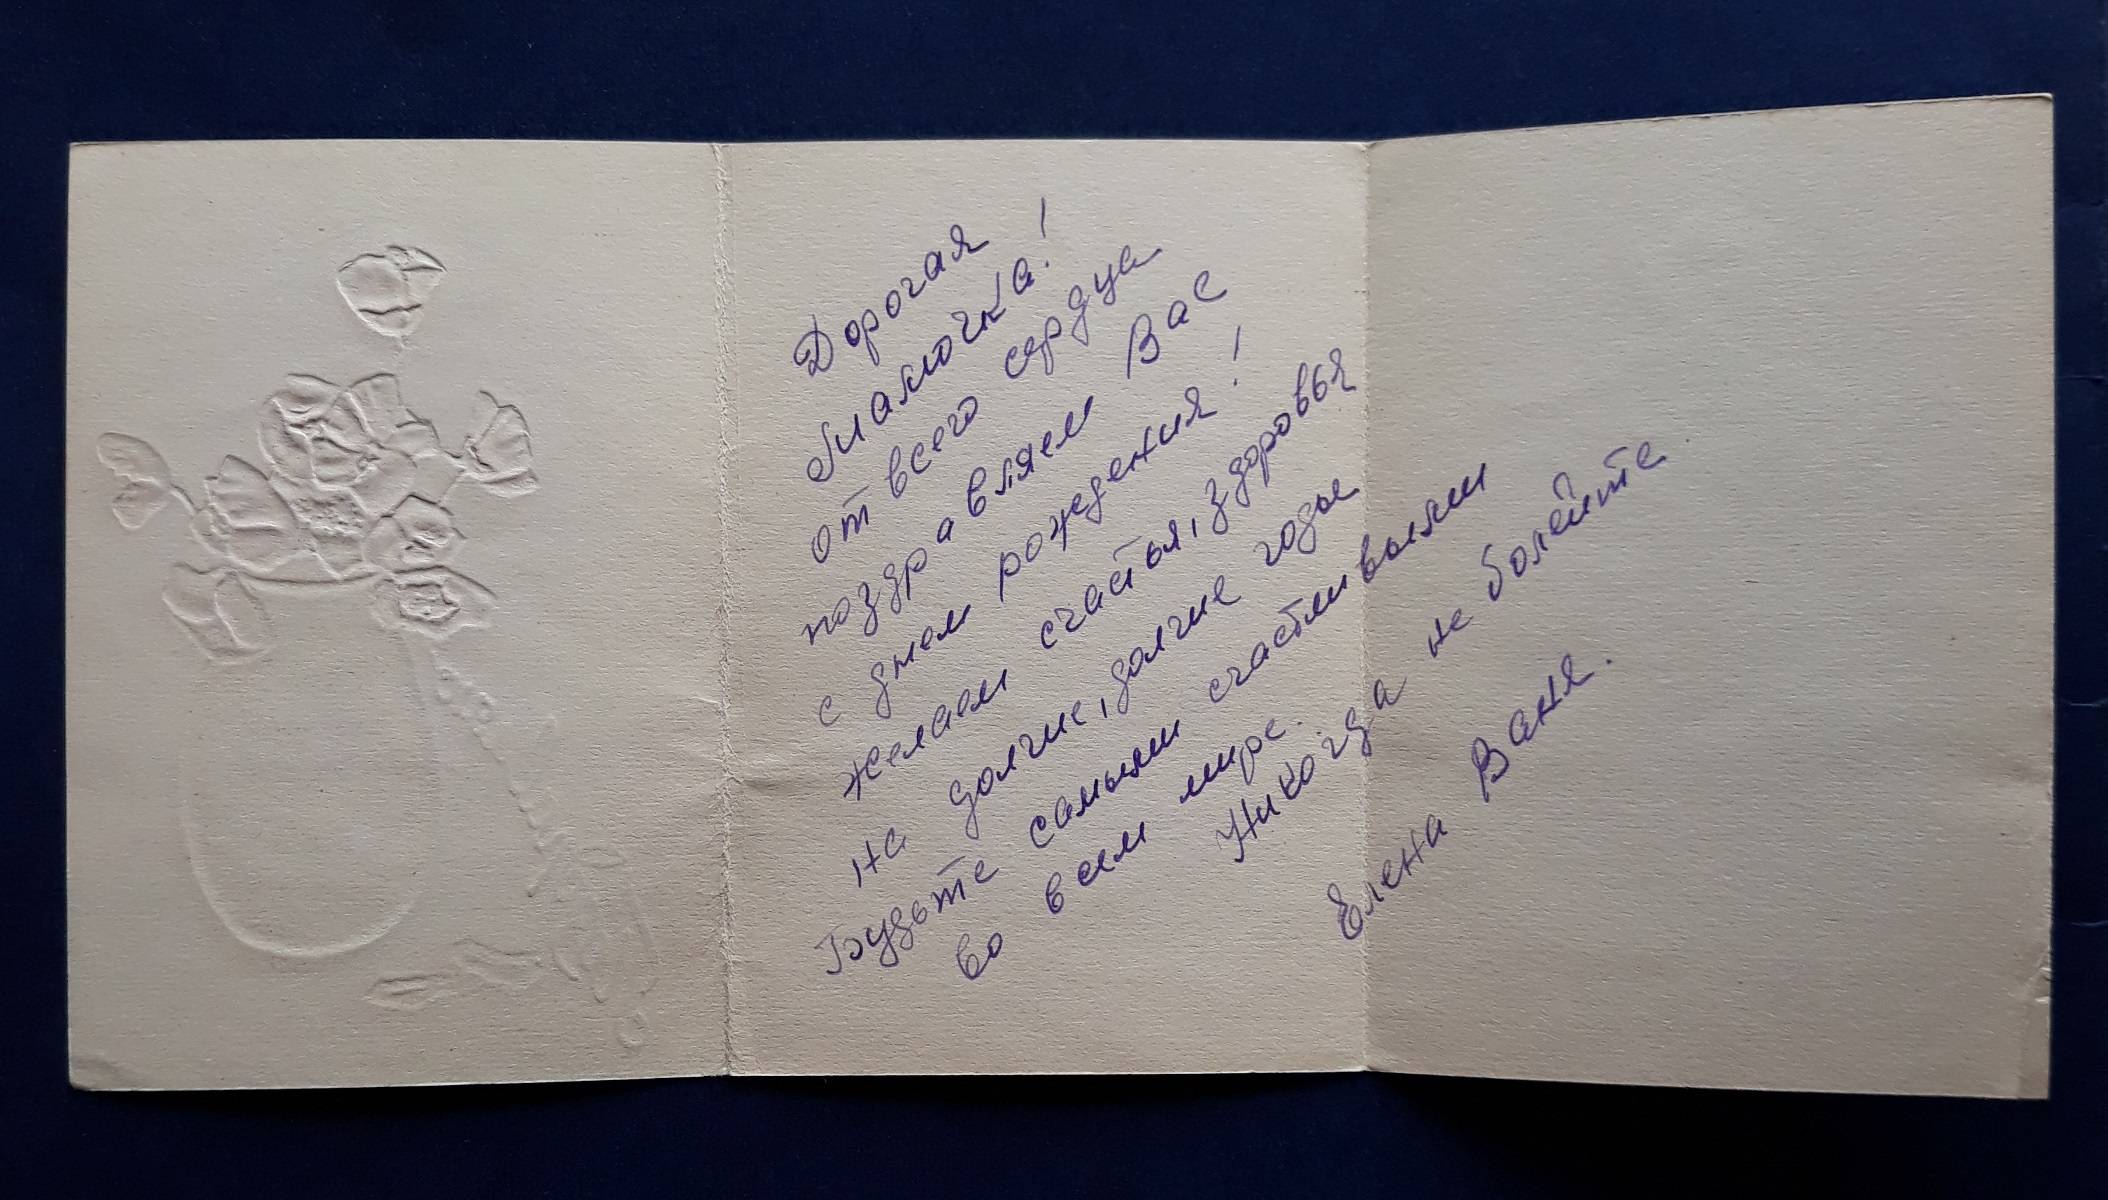 Дорогая
Мамочка!
от всего сердца
поздравляем Вас
с днем рождения!
желаем счастья, здоровья
на долгие, долгие годы
Будьте самыми счастливыми
во всем мире.
Никогда не болейте
Елена Ваня.